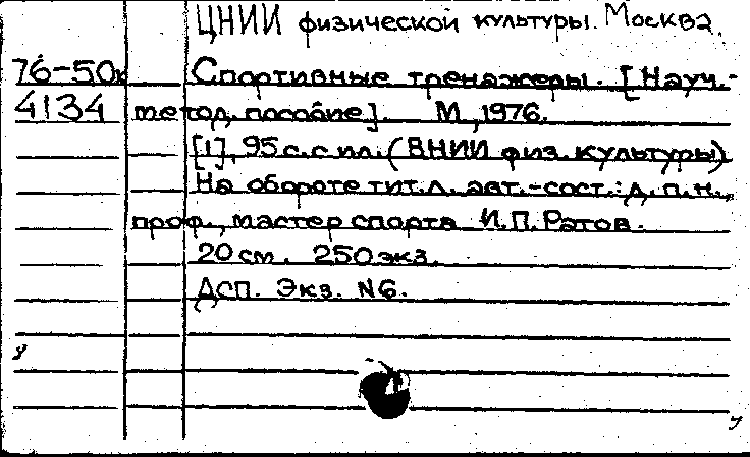 ЦНИИ физической культуры. Москва.
76-50к Спортивные тренажеры. [Науч.-
4134 метод. пособие]. М., 1976.
[1], 95 с. с ил. (ВНИИ физ. культуры)
На обороте тит. л. авт.-сост.: д. п. н.,
проф., мастер спорта И.П. Ратов.
20 см. 250 экз.
ДСП. Экз. №6.